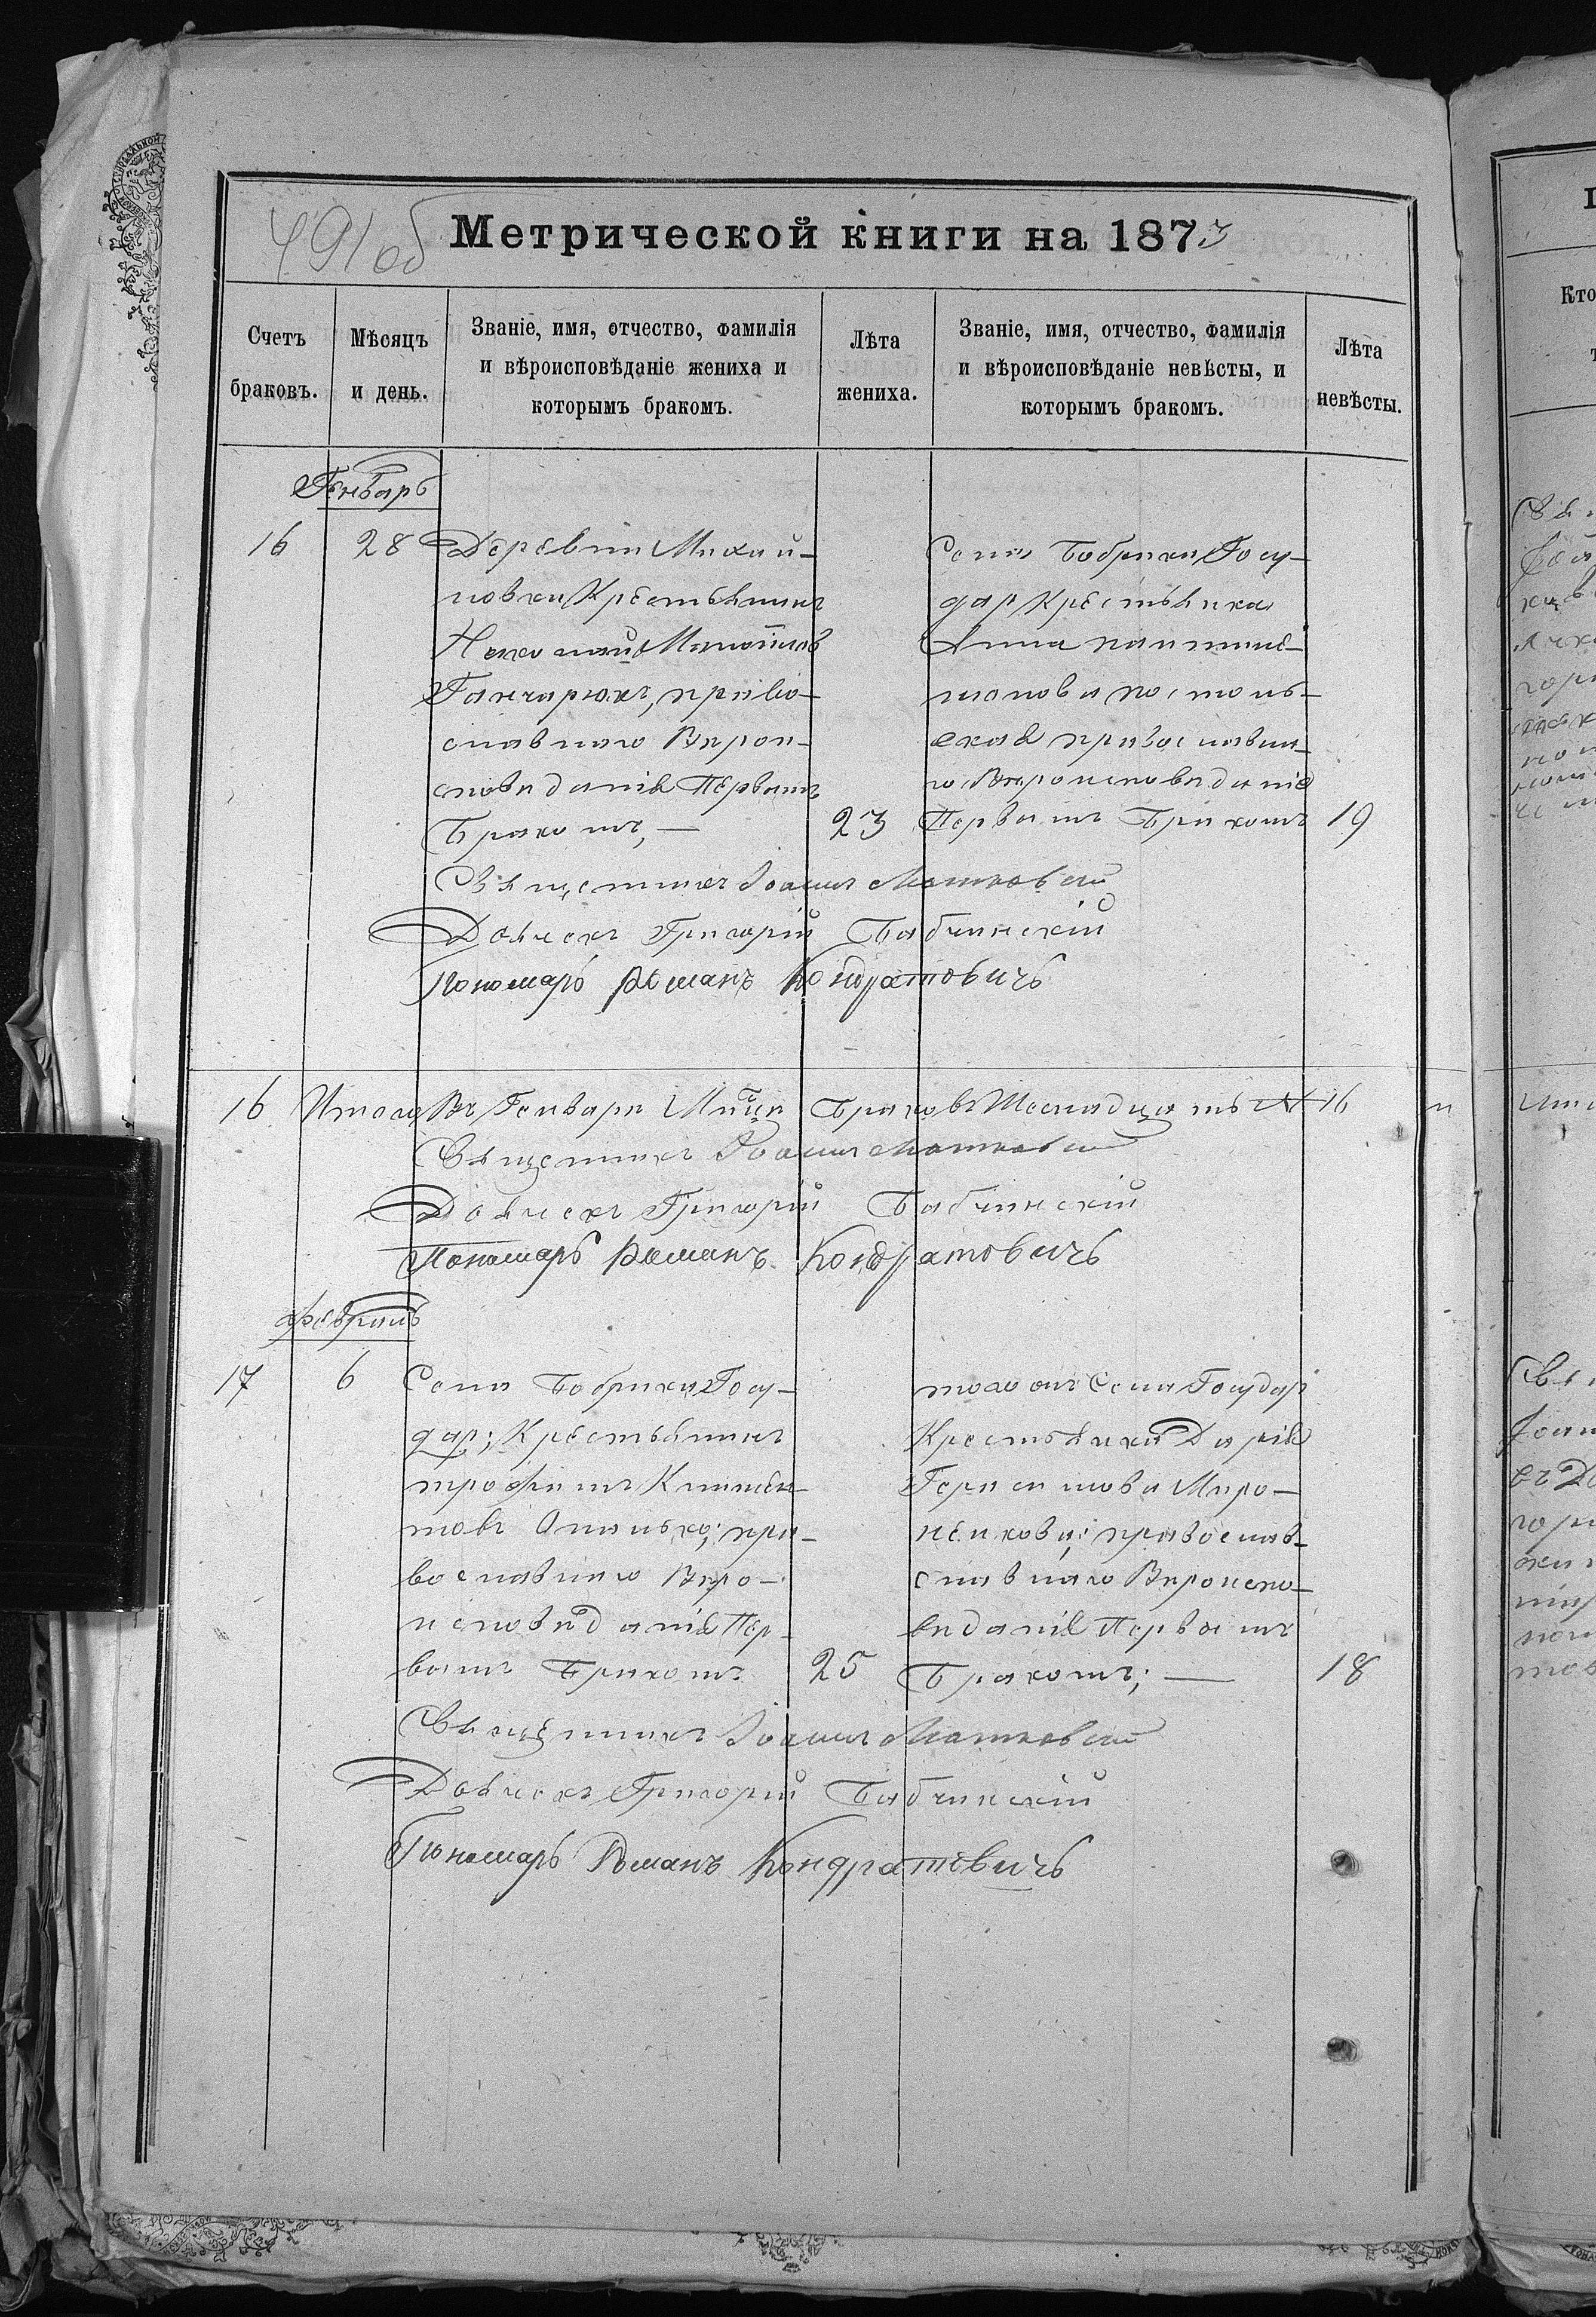 491об
Метрической книги на 1873
Счетъ браковъ.
Мѣсяцъ и день.
Званіе, имя, отчество, фамилія и вѣроисповѣданіе жениха и которымъ бракомъ.
Лѣта жениха.
Званіе, имя, отчество, фамилія и вѣроисповѣданіе невѣсты, и которымъ бракомъ.
Лѣта невѣсты.
Генварь
16
28
Деревни Михай-
ловки Крестьянинъ
Николай
Ганчарюкъ, право-
славнаго Вѣрои-
сповѣданія Первымъ
Бракомъ,—
23
Села Бобрика Госу-
дар Крестьянка
Анна
православна-
го Вѣроисповѣданія
Первымъ Бракомъ
19
Священникъ Іоаннъ
Дьячекъ Григорій Бабчинскій
Пономарь Романъ Кондратовичъ
16 Итого Въ Генварѣ Мцѣ Браковъ Шеснадцать 16
Священникъ Іоаннъ
Дьячекъ Григорій Бабчинскій
Пономарь Романъ Кондратовичъ
Февраль
17
6
Села Бобрика Госу-
дар; Крестьянинъ
трофимъ Климен-
товъ пра-
вославнаго Вѣро-
исповѣданія Пер-
вымъ Бракомъ
25
тогожъ Села Государ
Крестьянка Дарія
Герасимова Миро-
ненкова; православ-
славнаго Вѣроиспо-
вѣданія Первымъ
Бракомъ;—
18
Священникъ Іоаннъ
Дьячекъ Григорій Бабчинскій
Пономарь Романъ Кондратовичъ